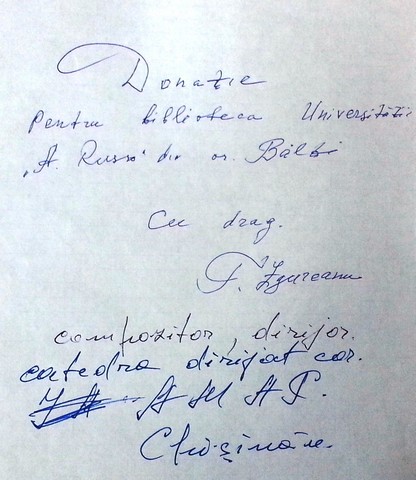 Donație
Pentru biblioteca Universității
„A. Russo" din or. Bălți
Cu drag.
T. Zgureanu
compozitor, dirijor.
catedra dirijat cor.
A M A P.
Chișinău.